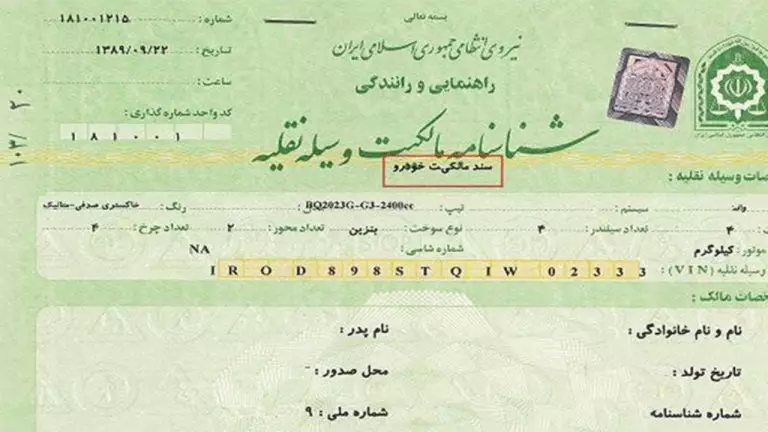 بسمه تعالی
شماره : ۱۸۱۰۰۱۲۱۵
نیروی انتظامی جمهوری اسلامی ایران
تاریخ : ۱۳۸۹/۰۹/۲۲
راهنمایی و رانندگی
ساعت :
کد واحد شماره گذاری :
۱۸۱۰۰۱
۱۰۳/ ۲۰
شناسنامه مالکیت وسیله نقلیه
سند مالکی‌ت خودرو
صات وسیله نقلیه :
وانت سیستم : تیپ: BQ2023G-G3-2400cc رنگ: خاکستری صدفی-متالیک
۴ تعداد سیلندر : ۴ نوع سوخت: بنزین تعداد محور: ۲ تعداد چرخ: ۴
موتور: کیلوگرم شماره شاسی: NA
وسیله نقلیه (VIN) : IROD898STQIW02333
خصات مالک :
نام و نام خانوادگی : نام پدر :
تاریخ تولد : محل صدور : -
شماره شناسنامه شماره ملی : ۹